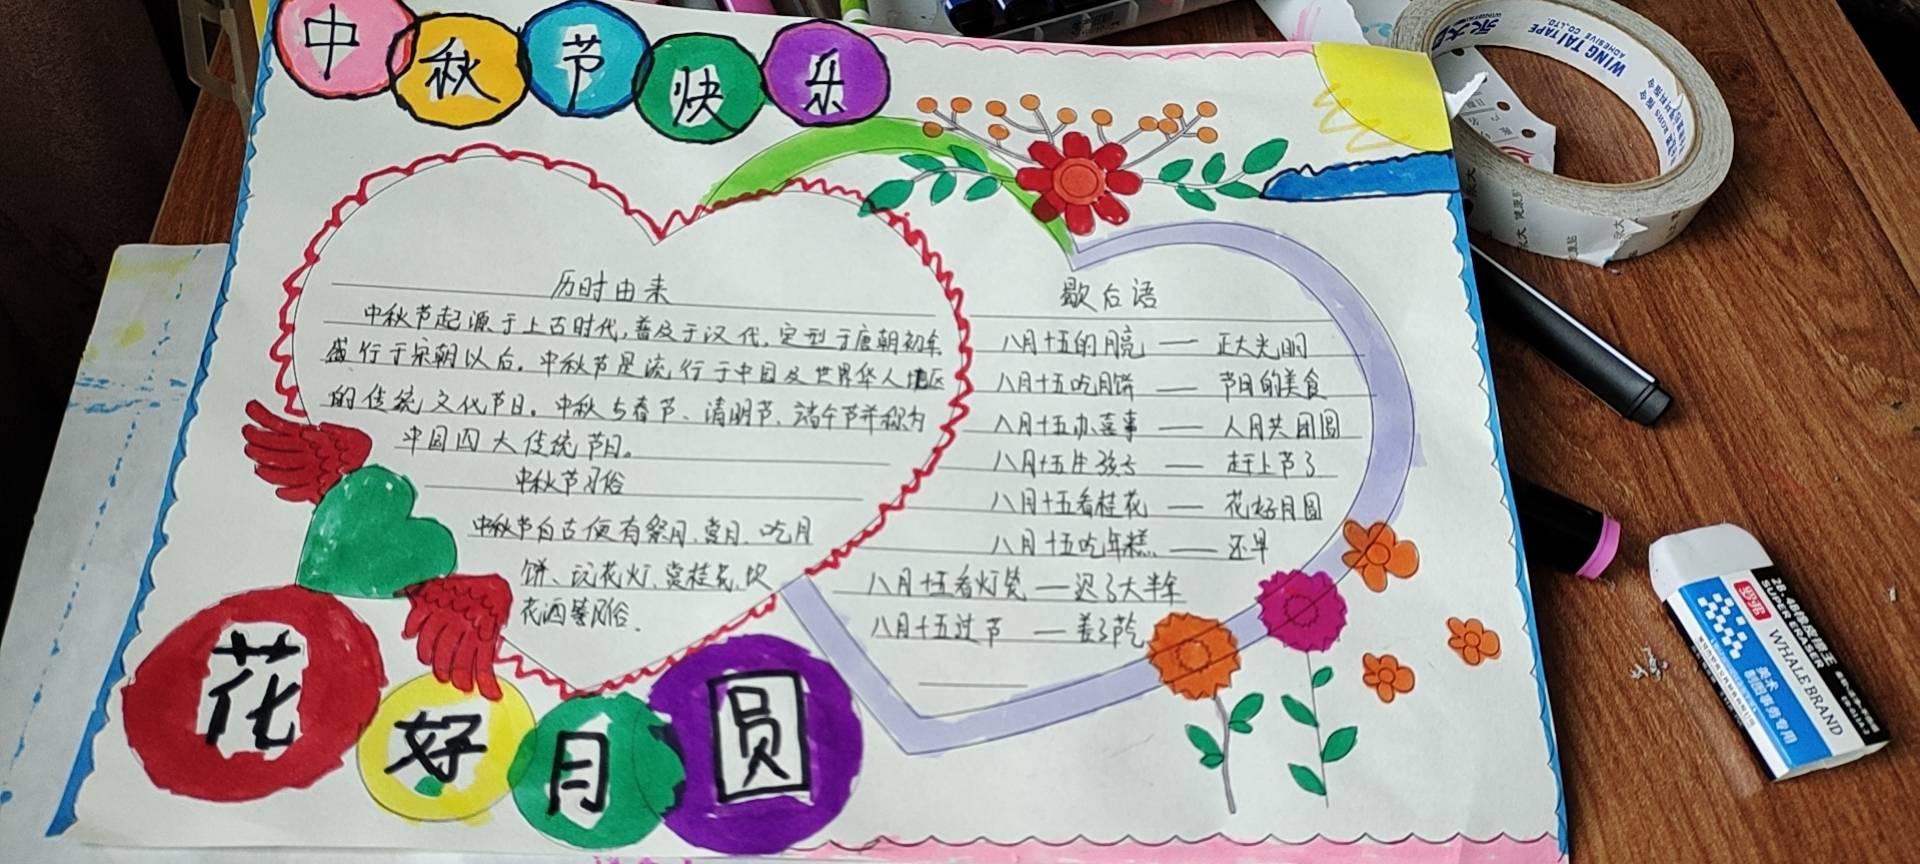 中秋节快乐
历时由来
中秋节起源于上古时代,普及于汉代,定型于唐朝初年
盛行于宋朝以后。中秋节是流行于中国及世界华人地区
的传统文化节日。中秋与春节、清明节、端午节并称为
中国四大传统节日。
中秋节习俗
中秋节自古便有祭月、赏月、吃月
饼、玩花灯、赏桂花、饮
花酒等风俗.
歇后语
八月十五的月亮 — 正大光明
八月十五吃月饼 — 节日的美食
八月十五办喜事 — 人月共团圆
八月十五生孩子 — 赶上节了
八月十五看桂花 — 花好月圆
八月十五吃年糕 — 还早
八月十五看灯笼 — 迟了大半年
八月十五过节 —
花好月圆
永大
WING TAI TAPE
ADHESIVE CO.,LTD.
SUPER ERASER
WHALE BRAND
美术
制图事务专用